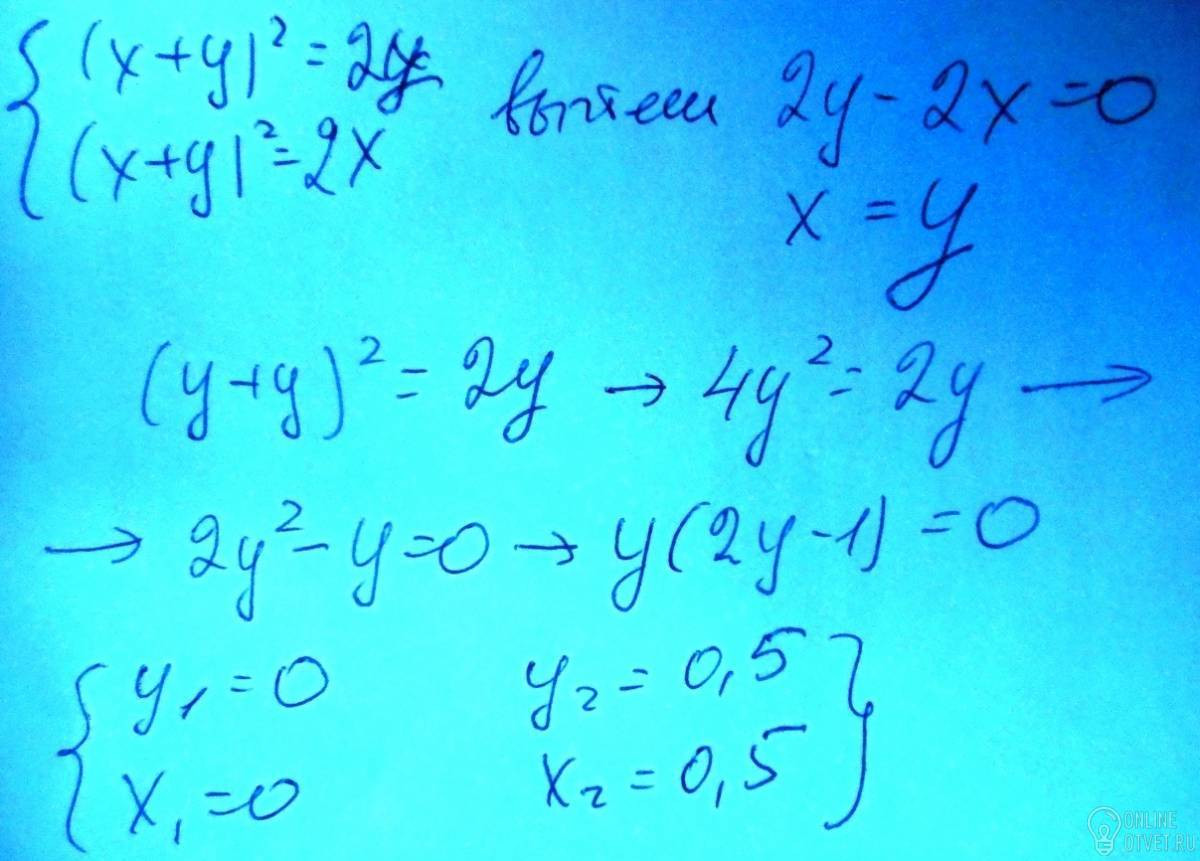 { (x+y)² = 2y
(x+y)² = 2x
вычтем 2y - 2x = 0
x = y
(y+y)² = 2y → 4y² = 2y →
→ 2y² - y = 0 → y(2y-1) = 0
{ y₁ = 0 y₂ = 0,5 }
x₁ = 0 x₂ = 0,5
ONLINE
OTVET.RU